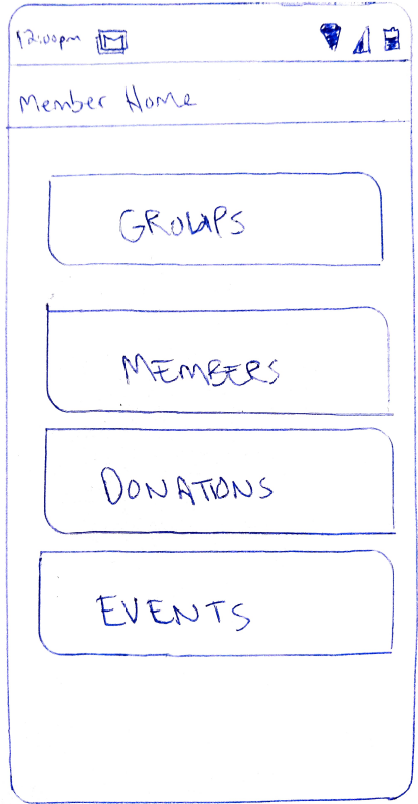 12:00pm
Member Home
GROUPS
MEMBERS
DONATIONS
EVENTS